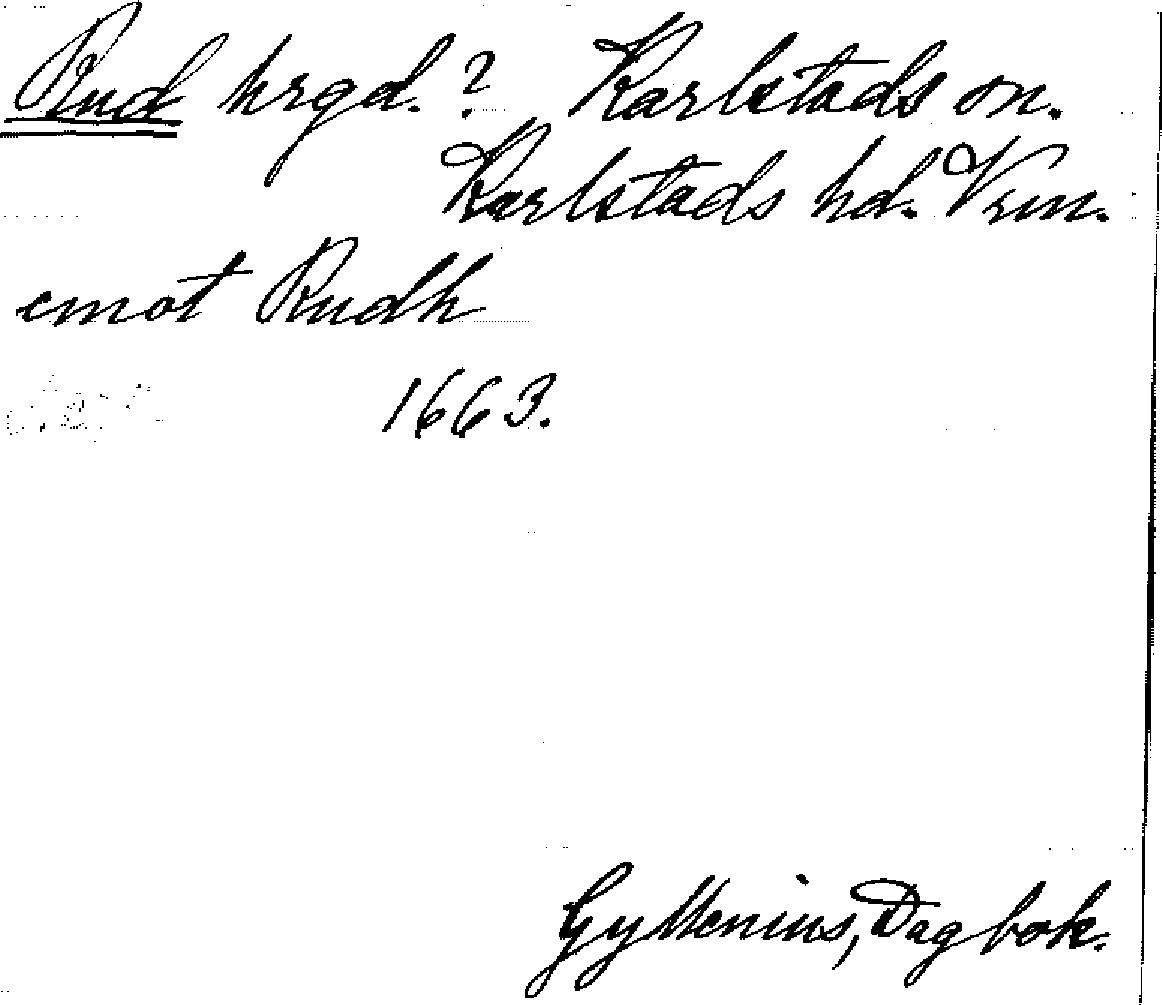 Rud hrgd.? Karlstads sn.
Karlstads hd. Vrm.
emot Rudh
1663.
Gyllenius, Dagbok.